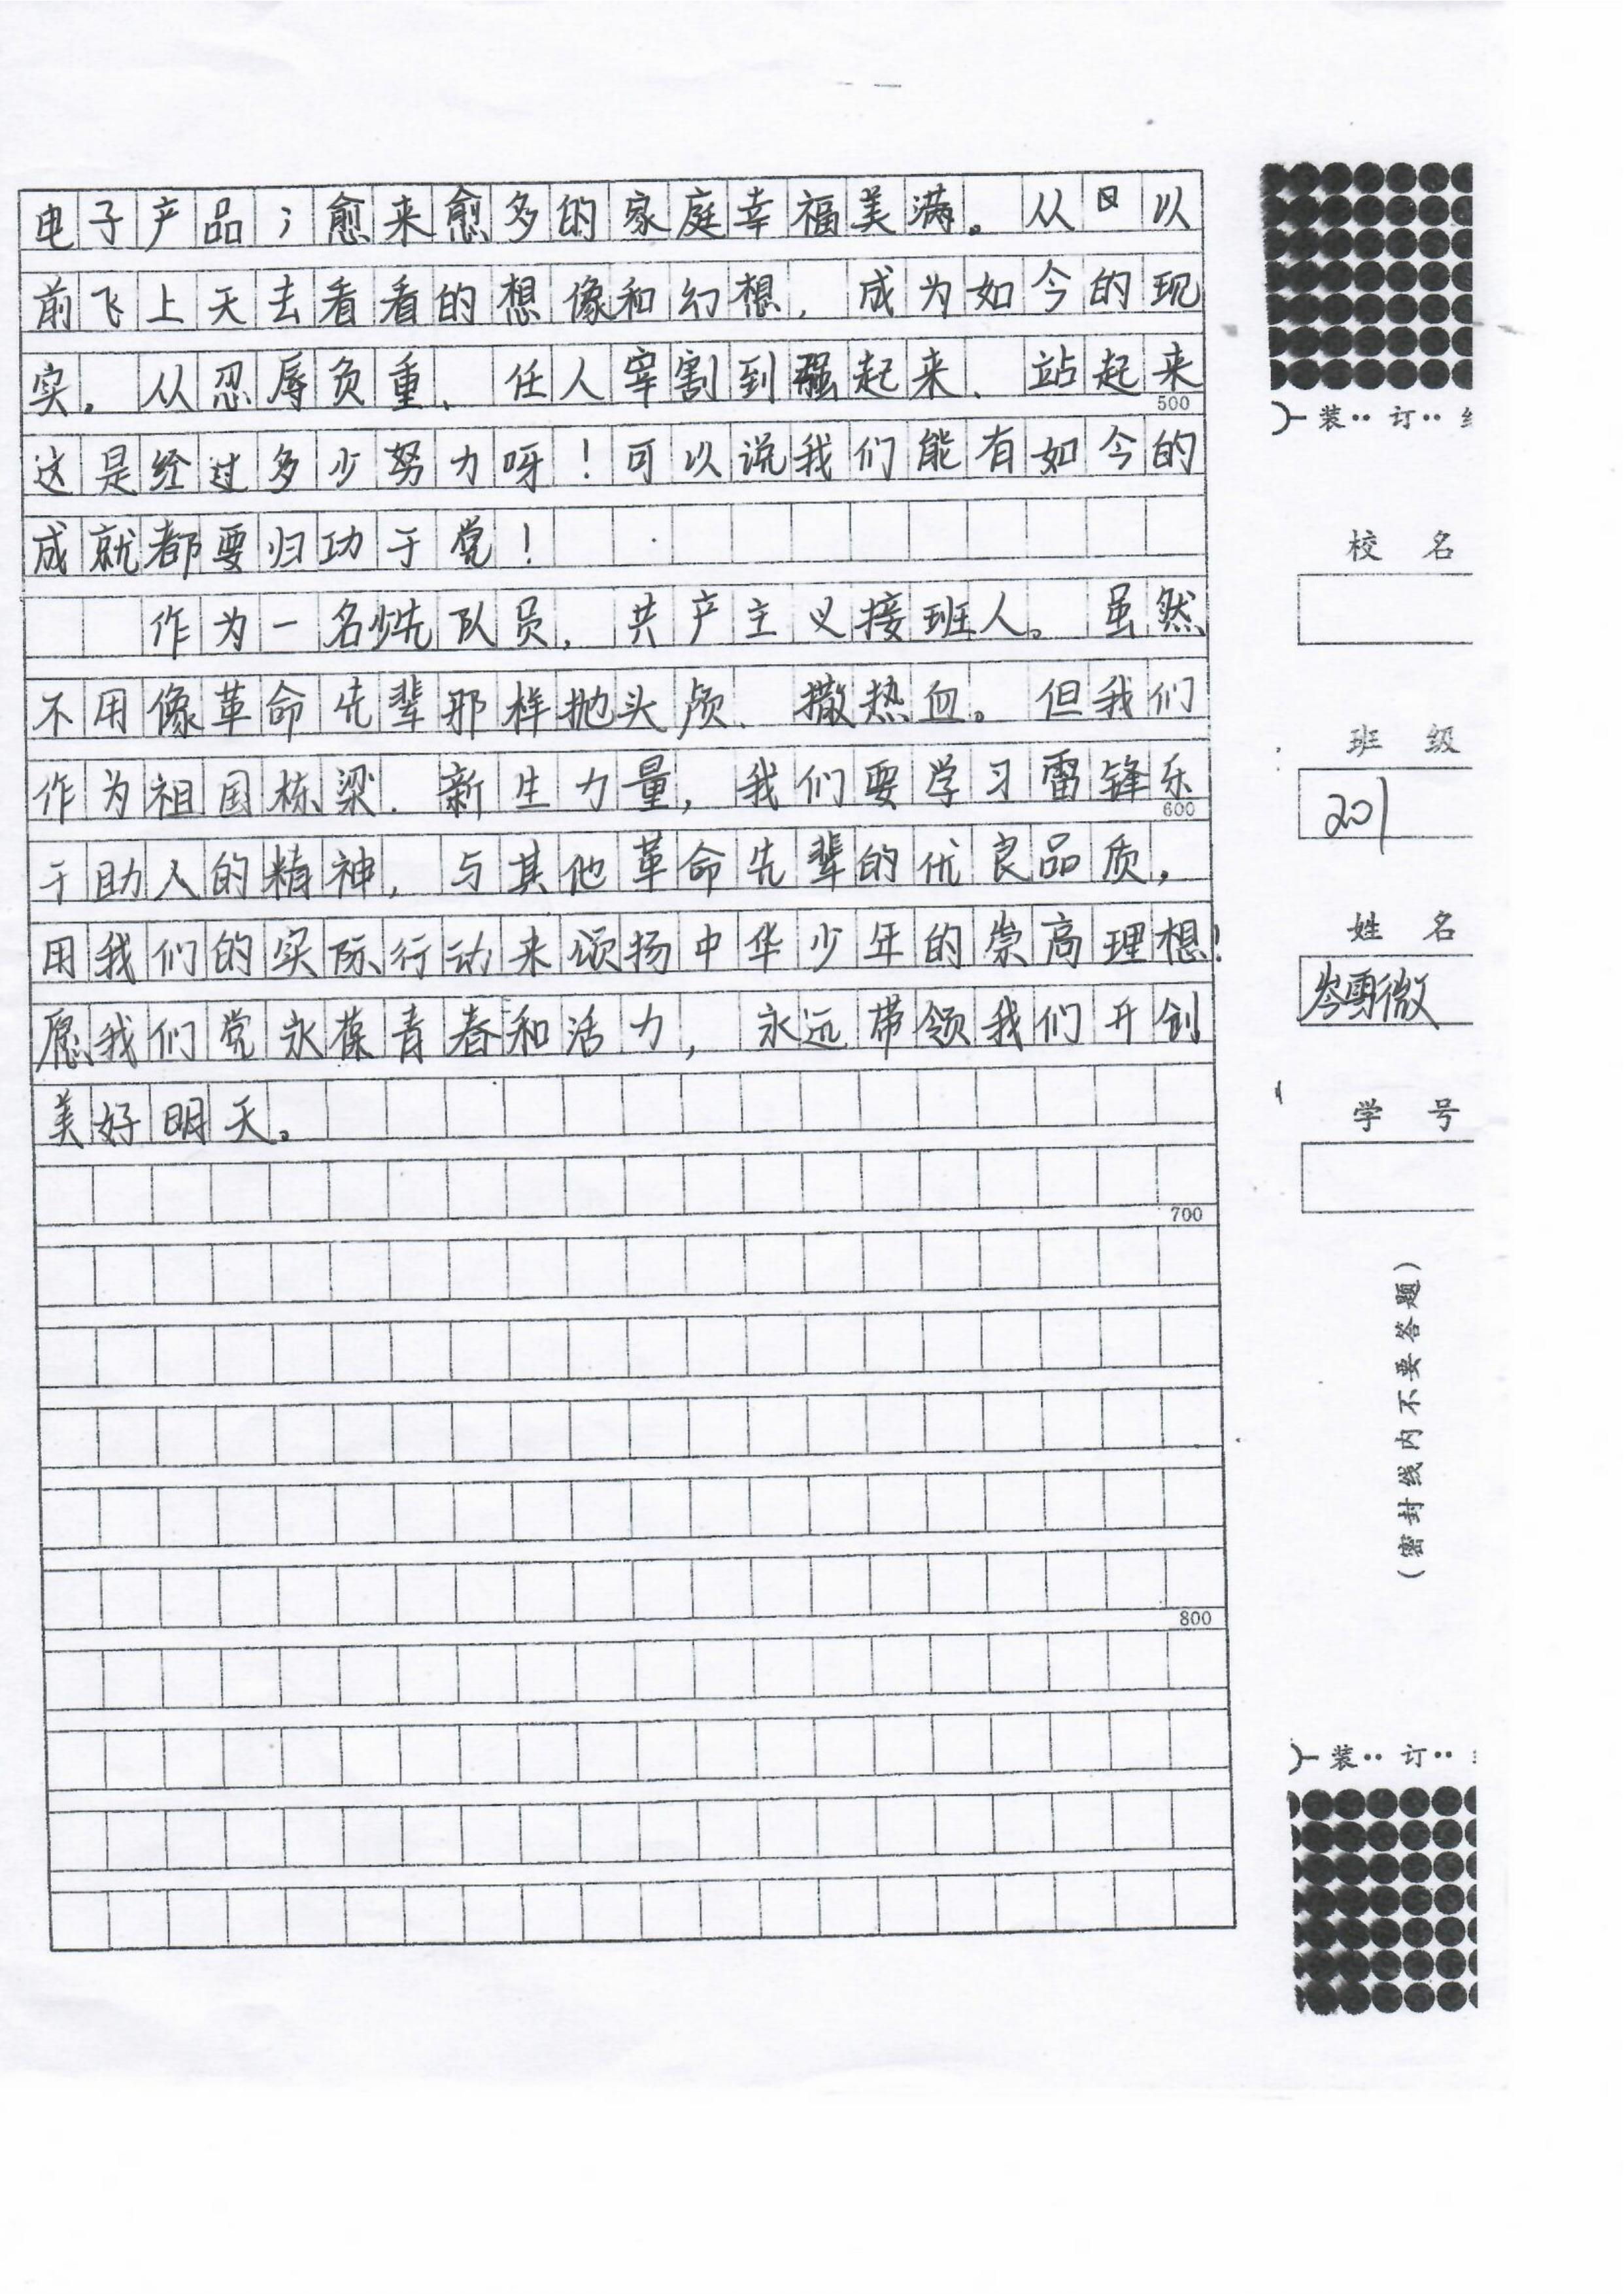 电子产品；愈来愈多的家庭幸福美满。从以
前飞上天去看看的想像和幻想，成为如今的现
实。从忍辱负重、任人宰割到强起来、站起来
500
这是经过多少努力呀！可以说我们能有如今的
成就都要归功于党！
作为一名少先队员，共产主义接班人。虽然
不用像革命先辈那样抛头颅、撒热血。但我们
作为祖国栋梁、新生力量，我们要学习雷锋乐
600
于助人的精神，与其他革命先辈的优良品质，
用我们的实际行动来颂扬中华少年的崇高理想！
愿我们党永葆青春和活力，永远带领我们开创
美好明天。
700
800
装 订
校 名
班 级
201
姓 名
岑雪微
学 号
（密封线内不要答题）
装 订